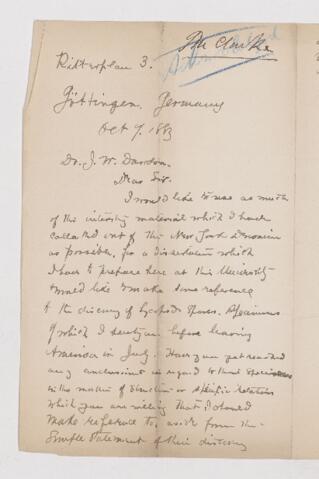 J M Clarke
Ritterplan 3.
Göttingen, Germany
Oct 9. 1883
Dr. J. W. Dawson.
Dear Sir.
I would like to use as much
of the interesting material which I have
collected out of the New York Devonian
as possible, for a dissertation which
I have to prepare here at this University
& would like to make some reference
to the discovery of Lycopod Spores. Specimens
of which I sent you before leaving
America in July. Have you yet reached
any conclusions in regard to these specimens
in the matter of structure or specific relations
which you are willing that I should
make reference to, aside from the
simple statement of their discovery